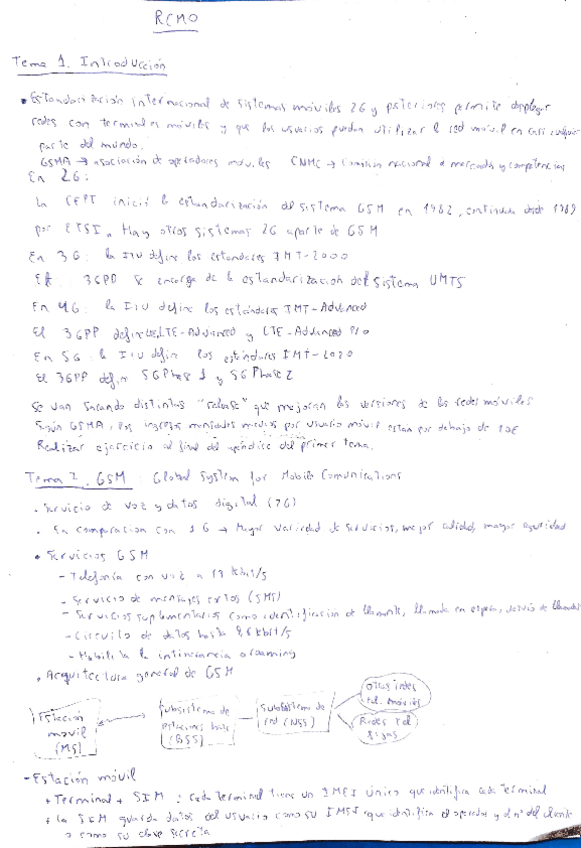 RCMO
Tema 1. Introducción
• Estandarización internacional de sistemas móviles 2G y posteriores permite desplegar
redes con terminales móviles y que los usuarios puedan utilizar la red móvil en casi cualquier
parte del mundo.
GSMA → asociación de operadores móviles CNMC → Comision nacional de mercados y competencias
En 2G:
La CEPT inició la estandarización del sistema GSM en 1982, continuada desde 1989
por ETSI. Hay otros sistemas 2G aparte de GSM
En 3G: la ITU define los estandares IMT-2000
El 3GPP se encarga de la estandarización del sistema UMTS
En 4G: la ITU define los estándares IMT-Advanced
El 3GPP define LTE-Advanced y LTE-Advanced Pro
En 5G: la ITU define los estándares IMT-2020
El 3GPP define 5G Phase 1 y 5G Phase 2
Se van sacando distintas "release" que mejoran las versiones de las redes móviles
Según GSMA, los ingresos mensuales medios por usuario móvil están por debajo de
Realizar ejercicio al final del apéndice del primer tema.
Tema 2. GSM : Global System for Mobile Comunications
• Servicio de voz y datos digital (2G)
• En comparación con 1G → Mayor variedad de servicios, mejor calidad, mayor seguridad
• Servicios GSM
- Telefonía con voz a 13 kbit/s
- Servicio de mensajes cortos (SMS)
- Servicios suplementarios como identificacion de llamante, llamada en espera, desvío de llamadas
- Circuito de datos hasta 9,6 kbit/s
- Mobilita la itinerancia o roaming
• Arquitectura general de GSM
Estación móvil (MS)
Subsistema de estaciones base (BSS)
Subsistema de red (NSS)
Otras redes tel. móviles
Redes tel fijas
- Estación móvil
+ Terminal + SIM : cada terminal tiene un IMEI único que identifica cada terminal
+ La SIM guarda datos del usuario como su IMSI que identifica el operador y el nº del cliente
o como su clave secreta